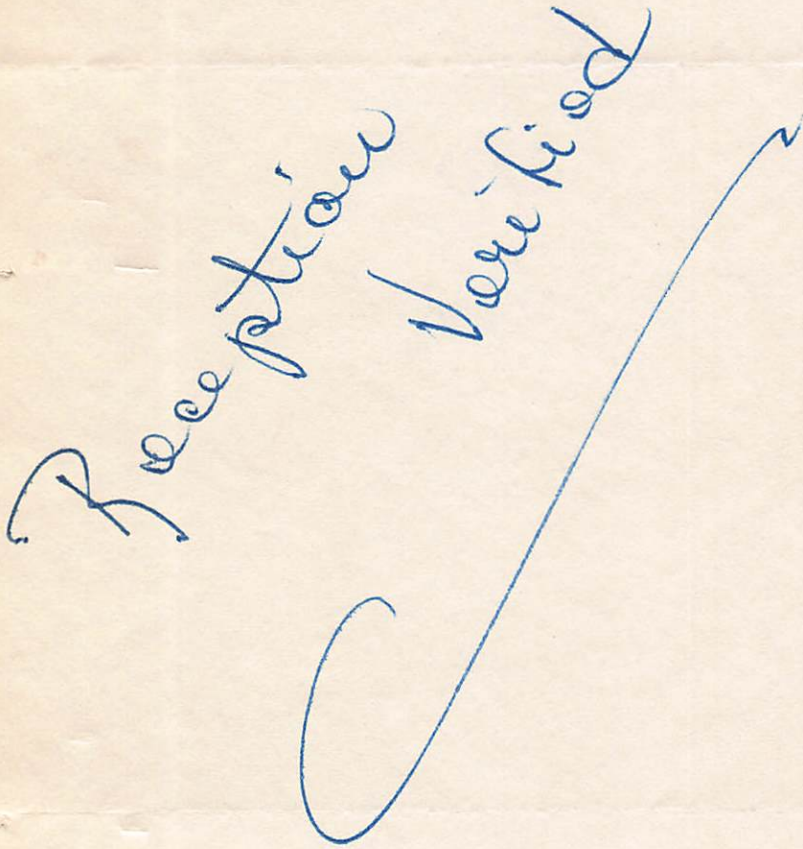 Reception
Verified